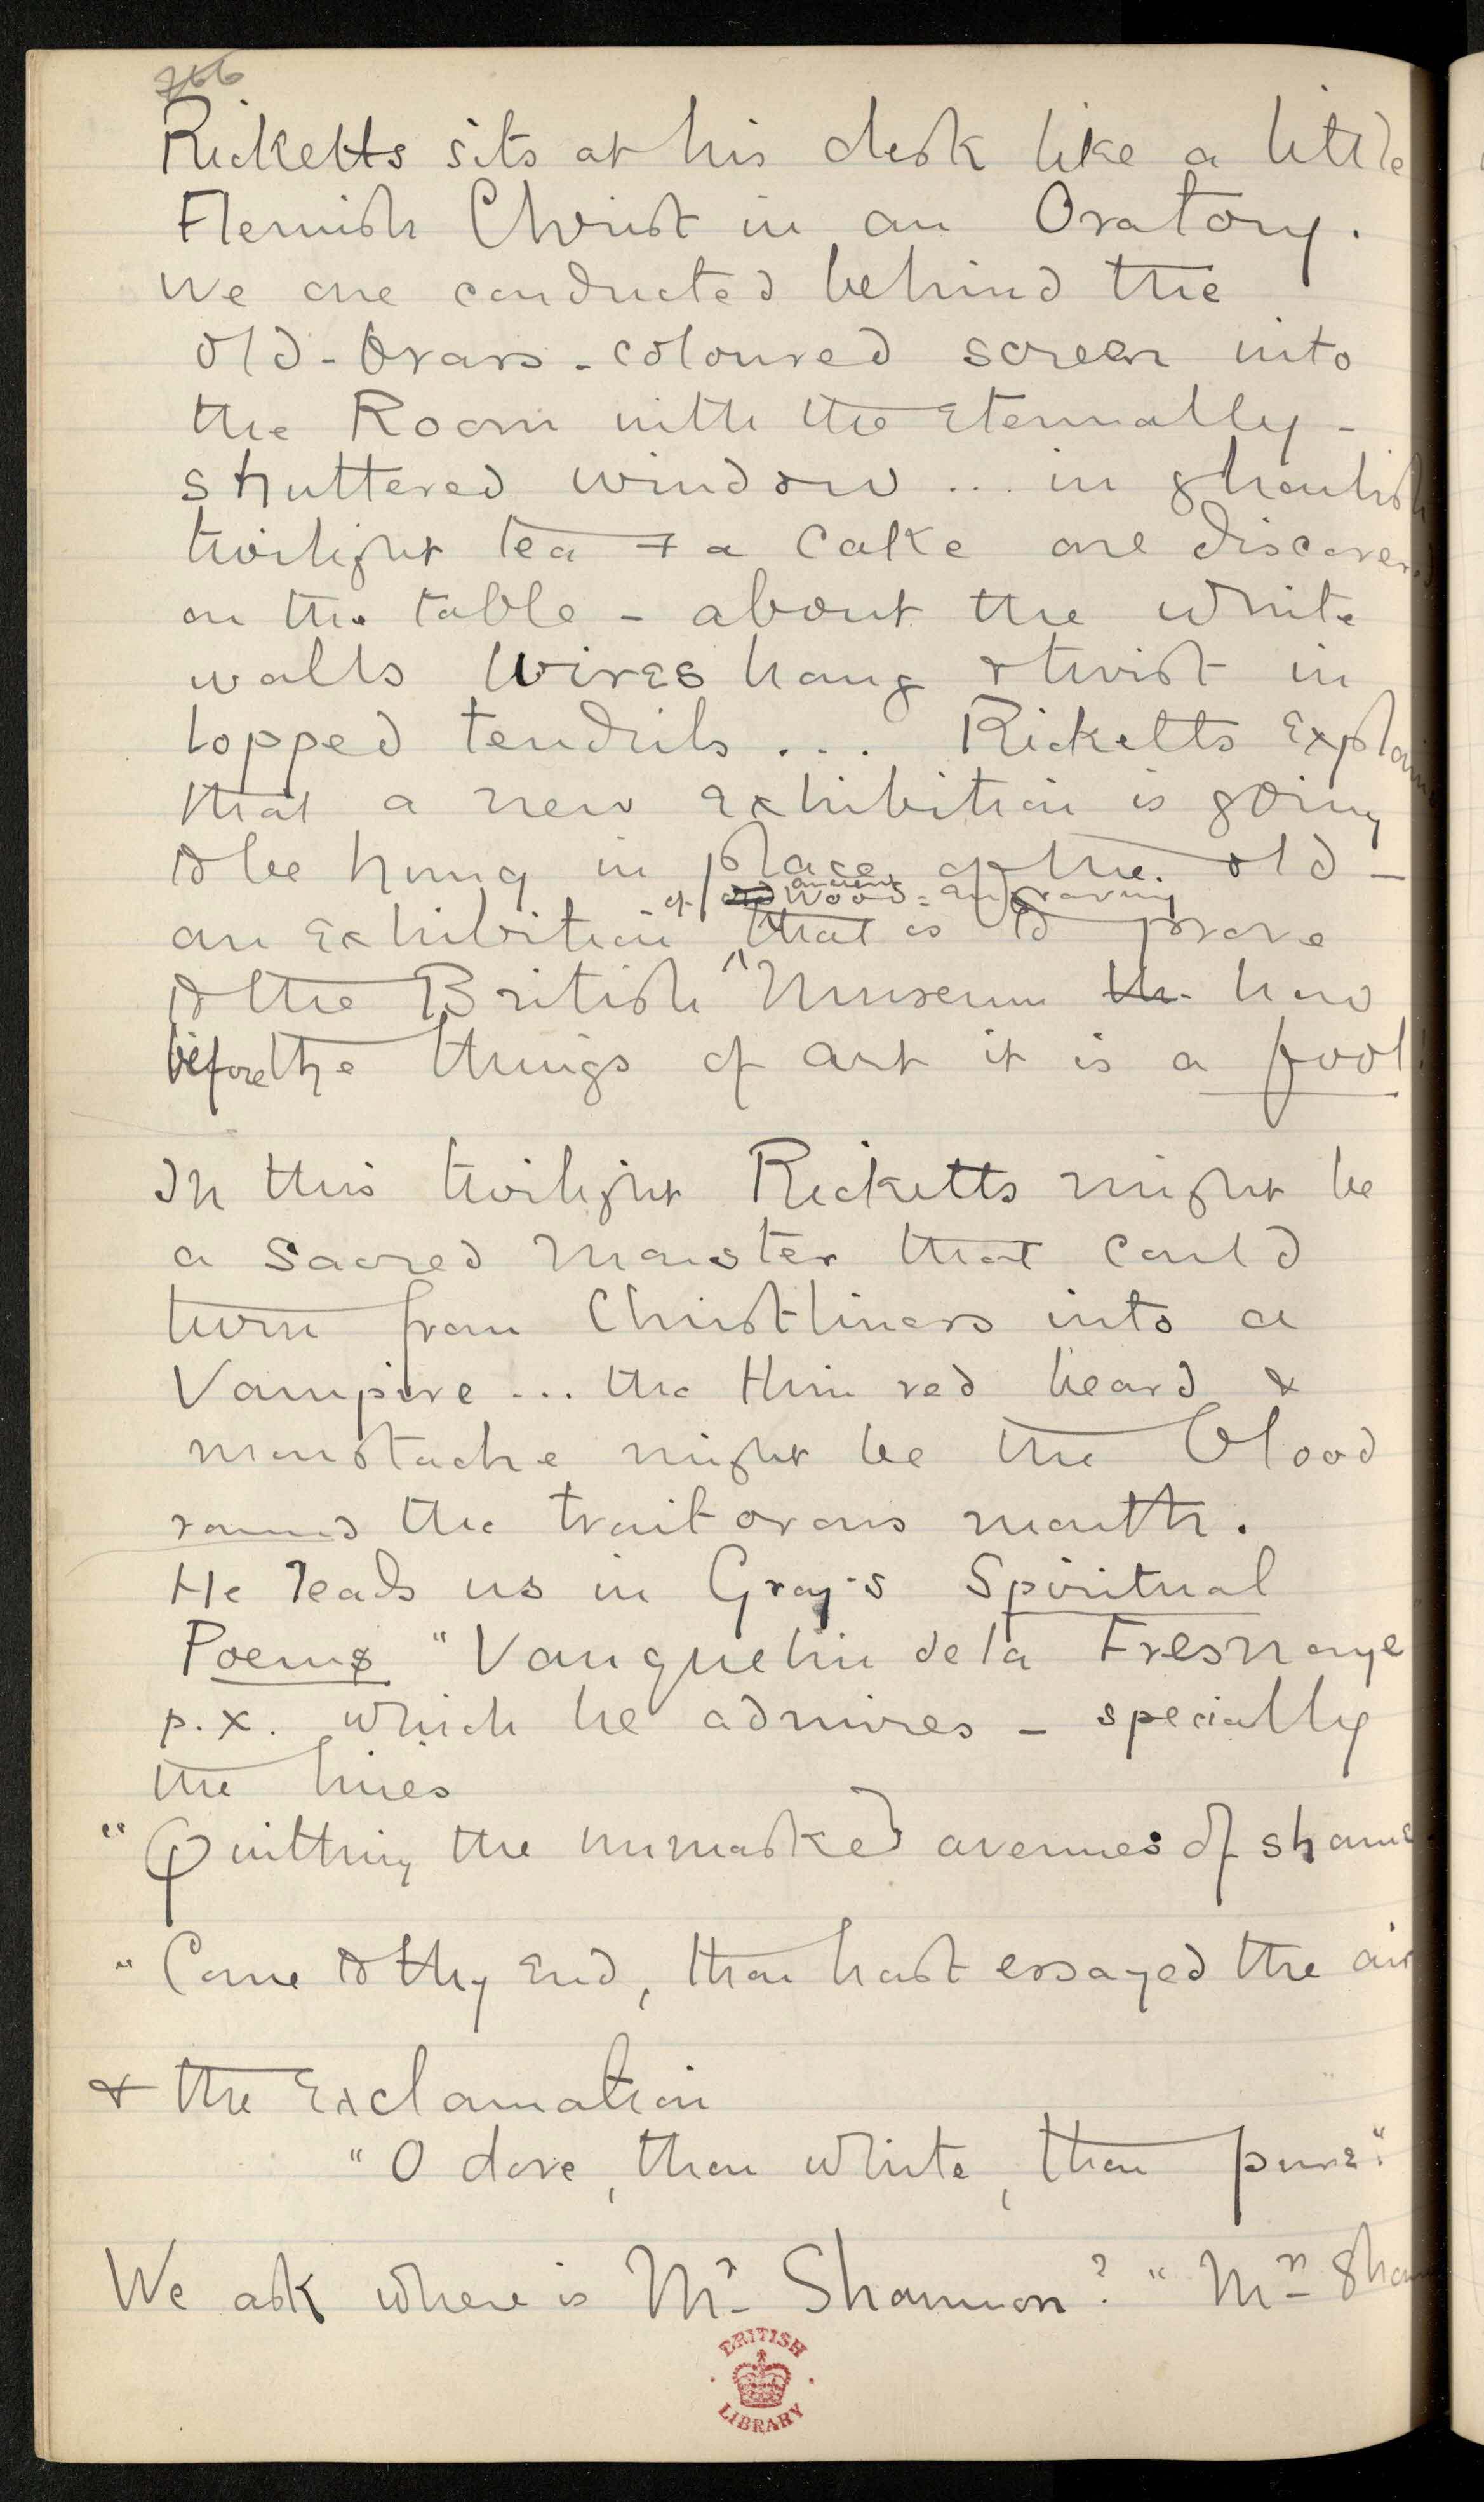 266
Ricketts sits at his desk like a little
Flemish Christ in an Oratory.
We are conducted behind the
old-brass-coloured screen into
the Room with the Eternally-
shuttered window ... in ghoulish
twilight tea + a cake are discovered
on the table - about the white
walls wires hang & twist in
lopped tendrils ... Ricketts Explains
that a new exhibition is going
to be hung in place of the old -
of old ancient Wood-engraving
an Exhibition ^ that is to prove
to the British Museum th how
before the things of art it is a fool!
In this twilight Ricketts might be
a Sacred Monster that could
turn from Christliness into a
Vampire ... the thin red beard &
moustache might be the blood
round the traitorous mouth.
He reads us in Gray's Spiritual
Poems "Vauquelin de la Fresnaye
p.x. which he admires - specially
the lines
"Quitting the unmasked avenues of shame
"Come to thy End, thou hast essayed the air
& the Exclamation
"O dove, thou white, thou pure".
We ask where is Mr Shannon? "Mr Shan
BRITISH
LIBRARY